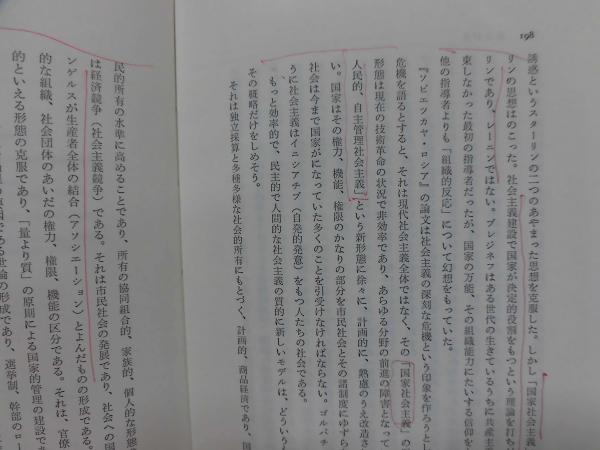 198
誘惑というスターリンの二つのあやまった思想を克服した。しかし「国家社会
リンの思想はのこった。社会主義建設で国家が決定的役割をもつという理論を打ち
リンであり、レーニンではない。ブレジネフはある世代の生きているうちに共産主
束しなかった最初の指導者だったが、国家の万能、その組織能力にたいする信仰を
他の指導者よりも「組織的反応」について幻想をもっていた。
『ソビエツカヤ・ロシア』の論文は社会主義の深刻な危機という印象を作ろうとし
危機を語るとすると、それは現代社会主義全体ではなく、その「国家社会主義」の
形態は現在の技術革命の状況で非効率であり、あらゆる分野の前進の障害となって
人民的、自主管理社会主義」という新形態に徐々に、計画的に、熟慮のうえ改造さ
い。国家はその権力、機能、権限のかなりの部分を市民社会とその諸制度にゆずら
社会は今まで国家がになっていた多くのことを引受けなければならない。ゴルバチ
うに社会主義はイニシアチブ（自発的発意）をもつ人たちの社会である。
もっと効率的で、民主的で人間的な社会主義の質的に新しいモデルは、どういう
その概略だけをしめそう。
それは独立採算と多種多様な社会的所有にもとづく、計画的、商品経済であり、国
民的所有の水準に高めることであり、所有の協同組合的、家族的、個人的な形態で
は経済競争（社会主義競争）である。それは市民社会の発展であり、社会への国
ンゲルスが生産者全体の結合（アソシエーション）とよんだものの形成である。
的な組織、社会団体のあいだの権力、権限、機能の区分である。それは、官僚
的といえる形態の克服であり、「量より質」の原則による国家的管理の建設であ
である世論の形成であり、選挙制、幹部のロー